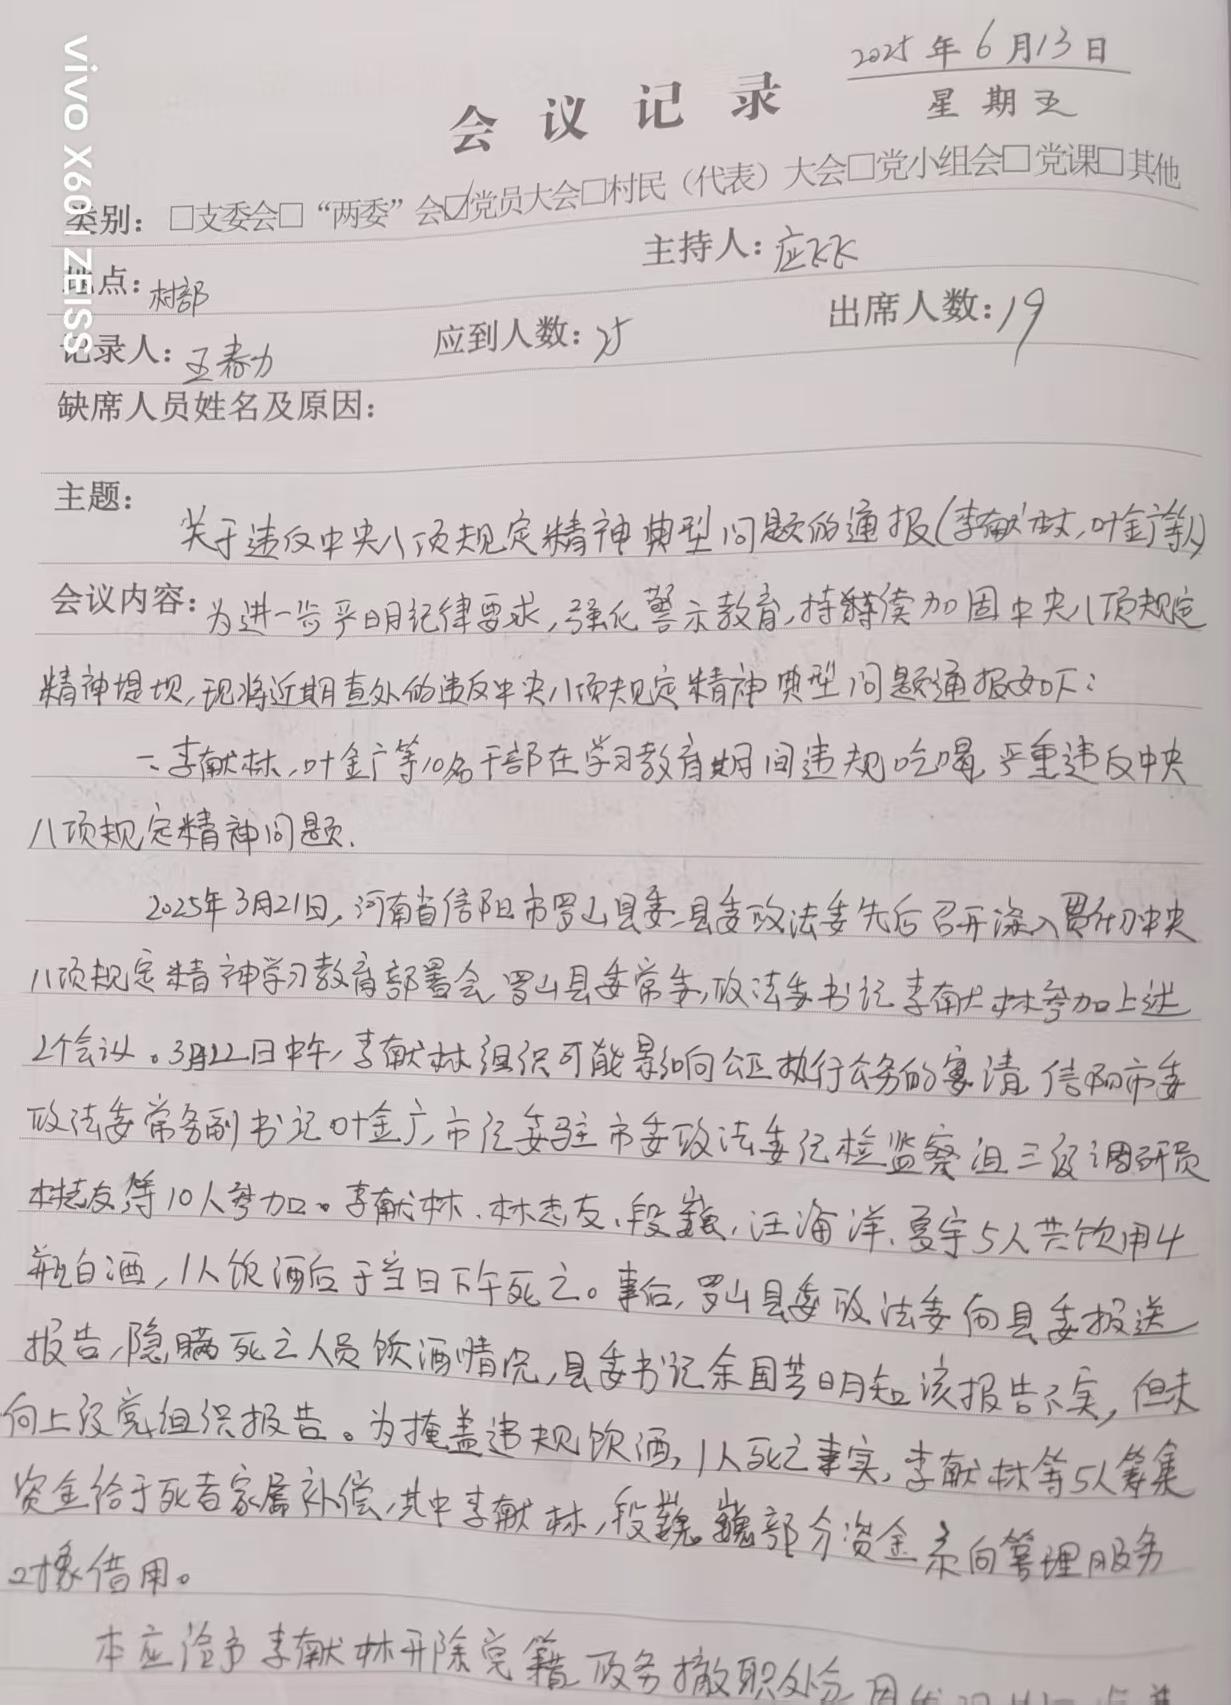 vivo X60 | ZEISS
2025年6月13日
星期五
会议记录
类别：□支委会□“两委”会☑党员大会□村民（代表）大会□党小组会□党课□其他
地点：村部 主持人：应
记录人：王春力 应到人数：25 出席人数：19
缺席人员姓名及原因：
主题：
关于违反中央八项规定精神典型问题的通报(李献林,叶金广等人)
会议内容：为进一步严明纪律要求,强化警示教育,持续加固中央八项规定
精神堤坝,现将近期查处的违反中央八项规定精神典型问题通报如下：
一、李献林,叶金广等10名干部在学习教育期间违规吃喝,严重违反中央
八项规定精神问题.
2025年3月21日,河南省信阳市罗山县委、县委政法委先后召开深入贯彻中央
八项规定精神学习教育部署会,罗山县委常委,政法委书记李献林参加上述
2个会议。3月22日中午,李献林组织可能影响公正执行公务的宴请,信阳市委
政法委常务副书记叶金广,市纪委驻市委政法委纪检监察组三级调研员
林志友等10人参加。李献林、林志友、段巍,汪海洋、夏宇5人共饮用4
瓶白酒,1人饮酒后于当日下午死亡。事后,罗山县委政法委向县委报送
报告,隐瞒死亡人员饮酒情况,县委书记余国芳明知该报告不实,但未
向上级党组织报告。为掩盖违规饮酒,1人死亡事实,李献林等5人筹集
资金给于死者家属补偿,其中李献林,段巍巍部分资金系向管理服务
对象借用。
本应给予李献林开除党籍政务撤职处分